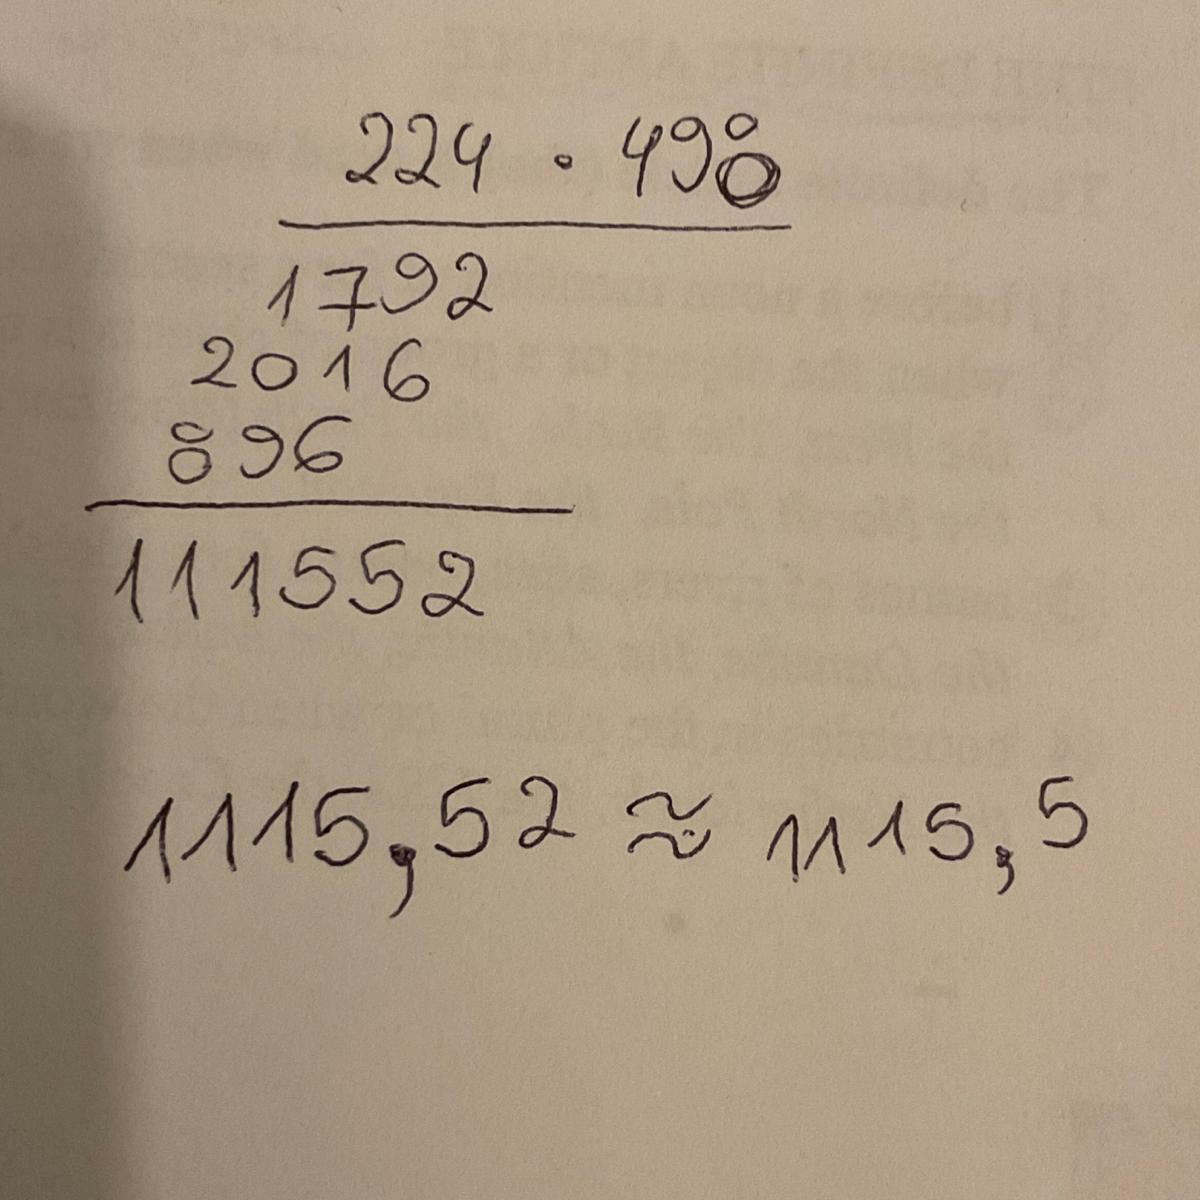 224 · 498
1792
2016
896
111552
1115,52 ≈ 1115,5